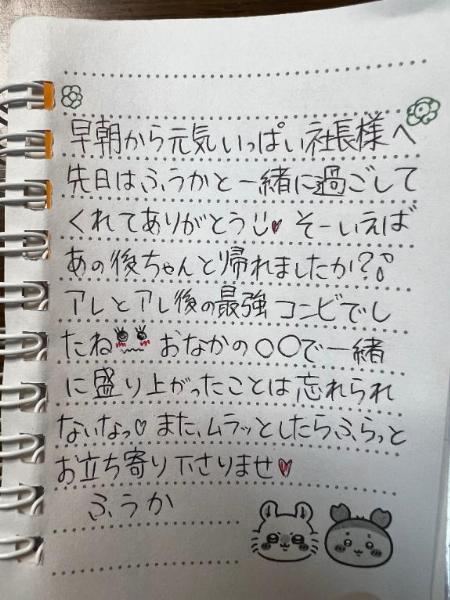 早朝から元気いっぱい社長様へ
先日はふうかと一緒に過ごして
くれてありがとう♥ そーいえば
あの後ちゃんと帰れましたか?
アレとアレ後の最強コンビでし
たね おなかの○○で一緒
に盛り上がったことは忘れられ
ないなっ♡ また、ムラッとしたらふらっと
お立ち寄り下さりませ♥
ふうか